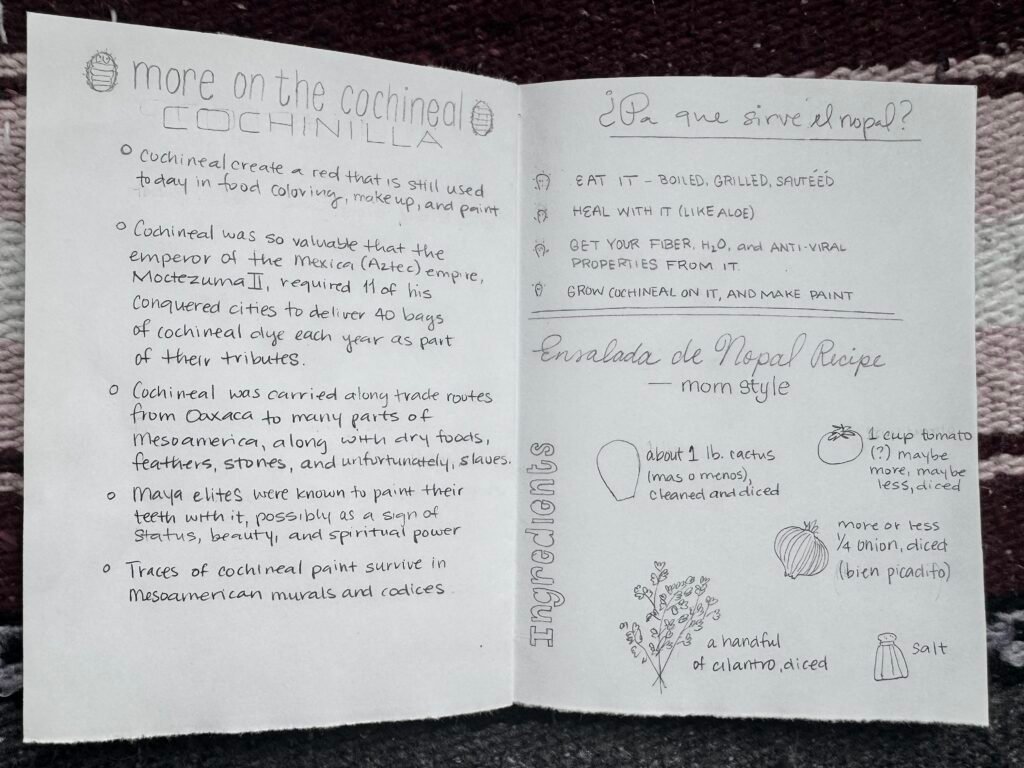 more on the cochineal
COCHINILLA
Cochineal create a red that is still used
today in food coloring, makeup, and paint
Cochineal was so valuable that the
emperor of the Mexica (Aztec) empire,
Moctezuma II, required 11 of his
conquered cities to deliver 40 bags
of cochineal dye each year as part
of their tributes.
Cochineal was carried along trade routes
from Oaxaca to many parts of
Mesoamerica, along with dry foods,
feathers, stones, and unfortunately, slaves.
Maya elites were known to paint their
teeth with it, possibly as a sign of
status, beauty, and spiritual power
Traces of cochineal paint survive in
Mesoamerican murals and codices
¿Pa que sirve el nopal?
EAT IT - BOILED, GRILLED, SAUTÉÉD
HEAL WITH IT (LIKE ALOE)
GET YOUR FIBER, H2O, and ANTI-VIRAL
PROPERTIES FROM IT.
GROW COCHINEAL ON IT, AND MAKE PAINT
Ensalada de Nopal Recipe
— mom style
Ingredients
about 1 lb. cactus
(mas o menos),
cleaned and diced
1 cup tomato
(?) maybe
more, maybe
less, diced
more or less
1/4 onion, diced
(bien picadito)
a handful
of cilantro, diced
salt